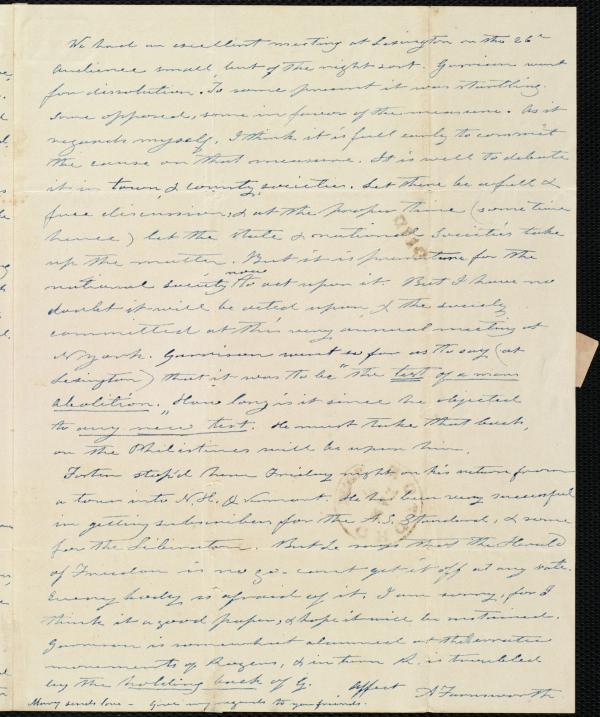 We had an excellent meeting at Lexington on the 26th
Audience small, but of the right sort. Garrison went
for dissolution. To some present it was startling.
Some opposed, some in favor of the measure. As it
regards myself, I think it is full early to commit
the cause on that measure. It is well to debate
it in town, & county, societies. Let there be a full &
free discussion, & at the proper time (sometime
hence) let the State & national Societies take
up the matter. But it is premature for the
national society now to act upon it. But I have no
doubt it will be acted upon, & the society
committed at this very annual meeting at
N York. Garrison went so far as to say (at
Lexington) that it was to be "the test of a man
abolition." How long is it since he objected
to any new test. He must take that back,
or the Philistines will be upon him.
Foster stop'd here Friday night on his return from
a tour into N.H. & Vermont. He has been very successful
in getting subscribers for the A.S. Standard, & some
for the Liberator. But he says that the Herald
of Freedom is no go - cant get it off at any rate.
Every body is afraid of it. I am sorry, for I
think it a good paper, & hope it will be sustained.
Garrison is somewhat alarmed at the erratic
movements of Rogers, & in turn R. is troubled
by the holding back of G. Affect A Farnsworth
Mary sends love - Give my regards to your friends.